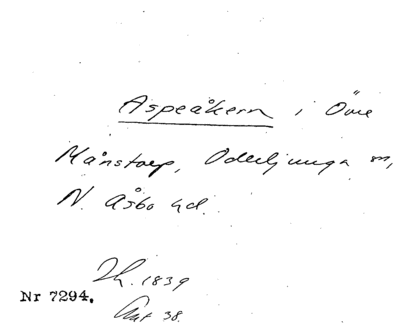 Aspeåkern i Övre
Månstorp, Oderljunga sn,
N. Åsbo hd.
Lh. 1839
Nr 7294.
Akt 38.